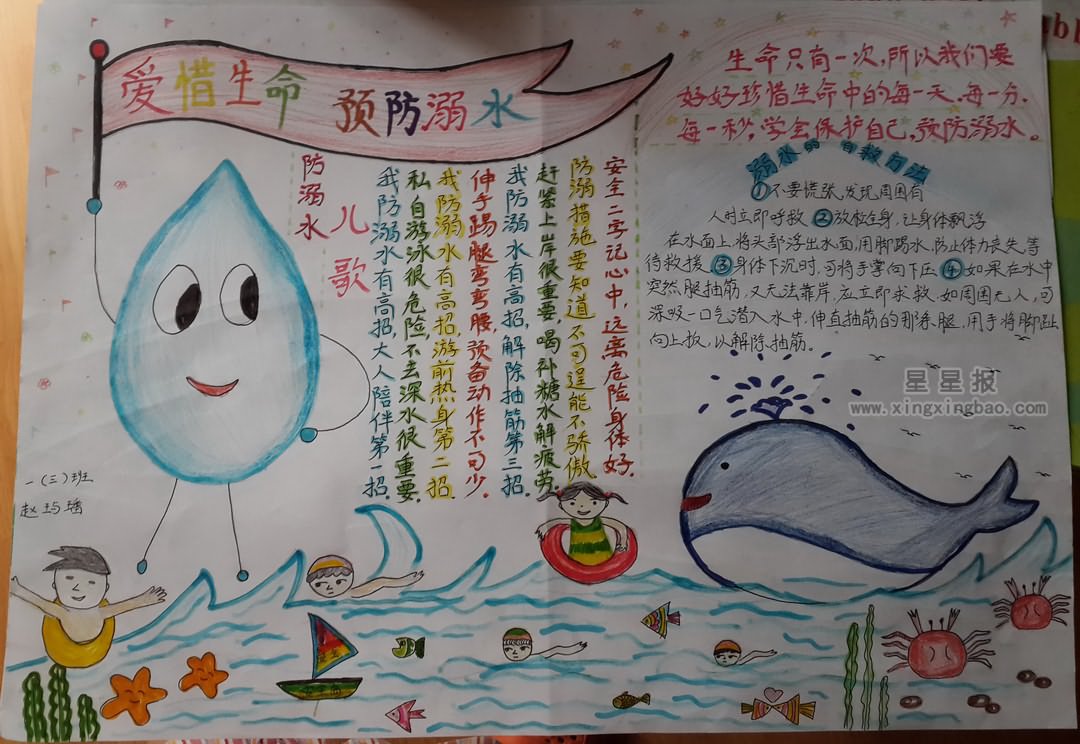 爱惜生命 预防溺水
生命只有一次,所以我们要
好好珍惜生命中的每一天、每一分、
每一秒,学会保护自己,预防溺水。
防溺水
儿歌
安全二字记心中,远离危险身体好。
防溺措施要知道,不可逞能不骄傲。
赶紧上岸很重要,喝补糖水解疲劳。
我防溺水有高招,解除抽筋第三招。
伸手踢腿弯弯腰,预备动作不可少。
我防溺水有高招,游前热身第二招。
私自游泳很危险,不去深水很重要。
我防溺水有高招,大人陪伴第一招。
溺水的自救方法
①不要慌张,发现周围有
人时立即呼救②放松全身,让身体飘浮
在水面上,将头部浮出水面,用脚踢水,防止体力丧失,等
待救援。③身体下沉时,可将手掌向下压④如果在水中
突然腿抽筋,又无法靠岸,应立即求救.如周围无人,可
深吸一口气潜入水中,伸直抽筋的那条腿,用手将脚趾
向上扳,以解除抽筋。
星星报
www.xingxingbao.com
一(三)班
赵